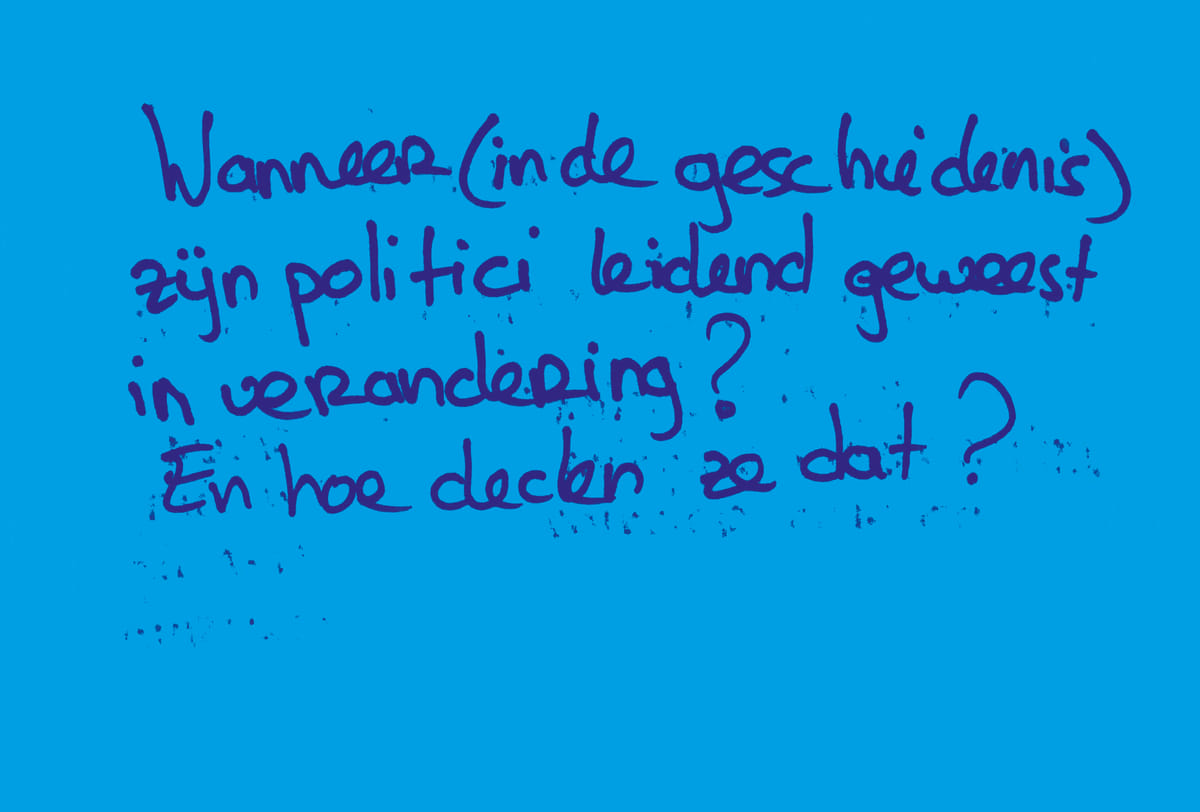 Wanneer (in de geschiedenis)
zijn politici leidend geweest
in verandering?
En hoe deden ze dat?